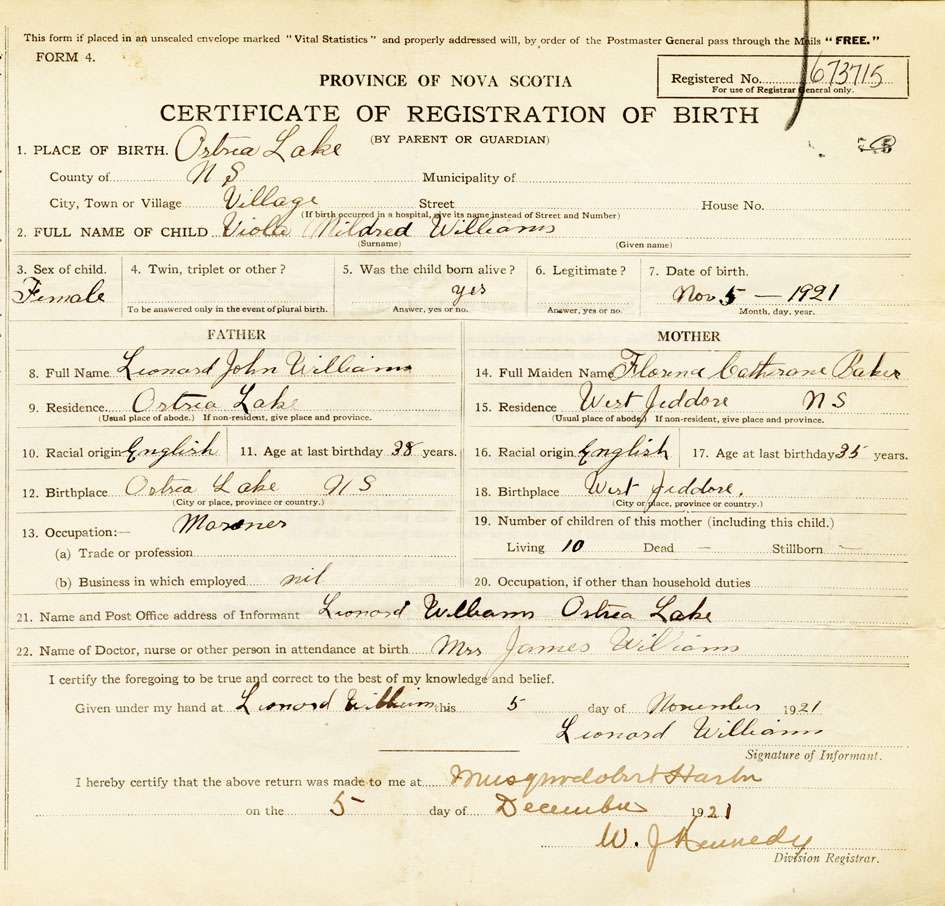 This form if placed in an unsealed envelope marked "Vital Statistics" and properly addressed will, by order of the Postmaster General pass through the Mails "FREE."
FORM 4.
PROVINCE OF NOVA SCOTIA
Registered No. 673715
For use of Registrar General only.
CERTIFICATE OF REGISTRATION OF BIRTH
(BY PARENT OR GUARDIAN)
1. PLACE OF BIRTH. Ostrea Lake
County of N S Municipality of
City, Town or Village Village Street House No.
(If birth occurred in a hospital, give its name instead of Street and Number)
2. FULL NAME OF CHILD Violla Mildred Williams
(Surname) (Given name)
3. Sex of child. 4. Twin, triplet or other? 5. Was the child born alive? 6. Legitimate? 7. Date of birth.
Female yes Nov 5 — 1921
To be answered only in the event of plural birth. Answer, yes or no. Answer, yes or no. Month, day, year.
FATHER MOTHER
8. Full Name Leonard John Williams 14. Full Maiden Name Florena Catherane Baker
9. Residence. Ostrea Lake 15. Residence West Jeddore N S
(Usual place of abode.) If non-resident, give place and province. (Usual place of abode) If non-resident, give place and province.
10. Racial origin English 11. Age at last birthday 38 years. 16. Racial origin English 17. Age at last birthday 35 years.
12. Birthplace Ostrea Lake N S 18. Birthplace West Jeddore.
(City or place, province or country.) (City or place, province or country.)
13. Occupation:— Marener 19. Number of children of this mother (including this child.)
(a) Trade or profession Living 10 Dead — Stillborn —
(b) Business in which employed nil 20. Occupation, if other than household duties
21. Name and Post Office address of Informant Leonard Williams Ostrea Lake
22. Name of Doctor, nurse or other person in attendance at birth Mrs James Williams
I certify the foregoing to be true and correct to the best of my knowledge and belief.
Given under my hand at Leonard Williams this 5 day of November 1921
Leonard Williams
Signature of Informant.
I hereby certify that the above return was made to me at Musquodoboit Harbor
on the 5 day of December 1921
W. J Kennedy
Division Registrar.